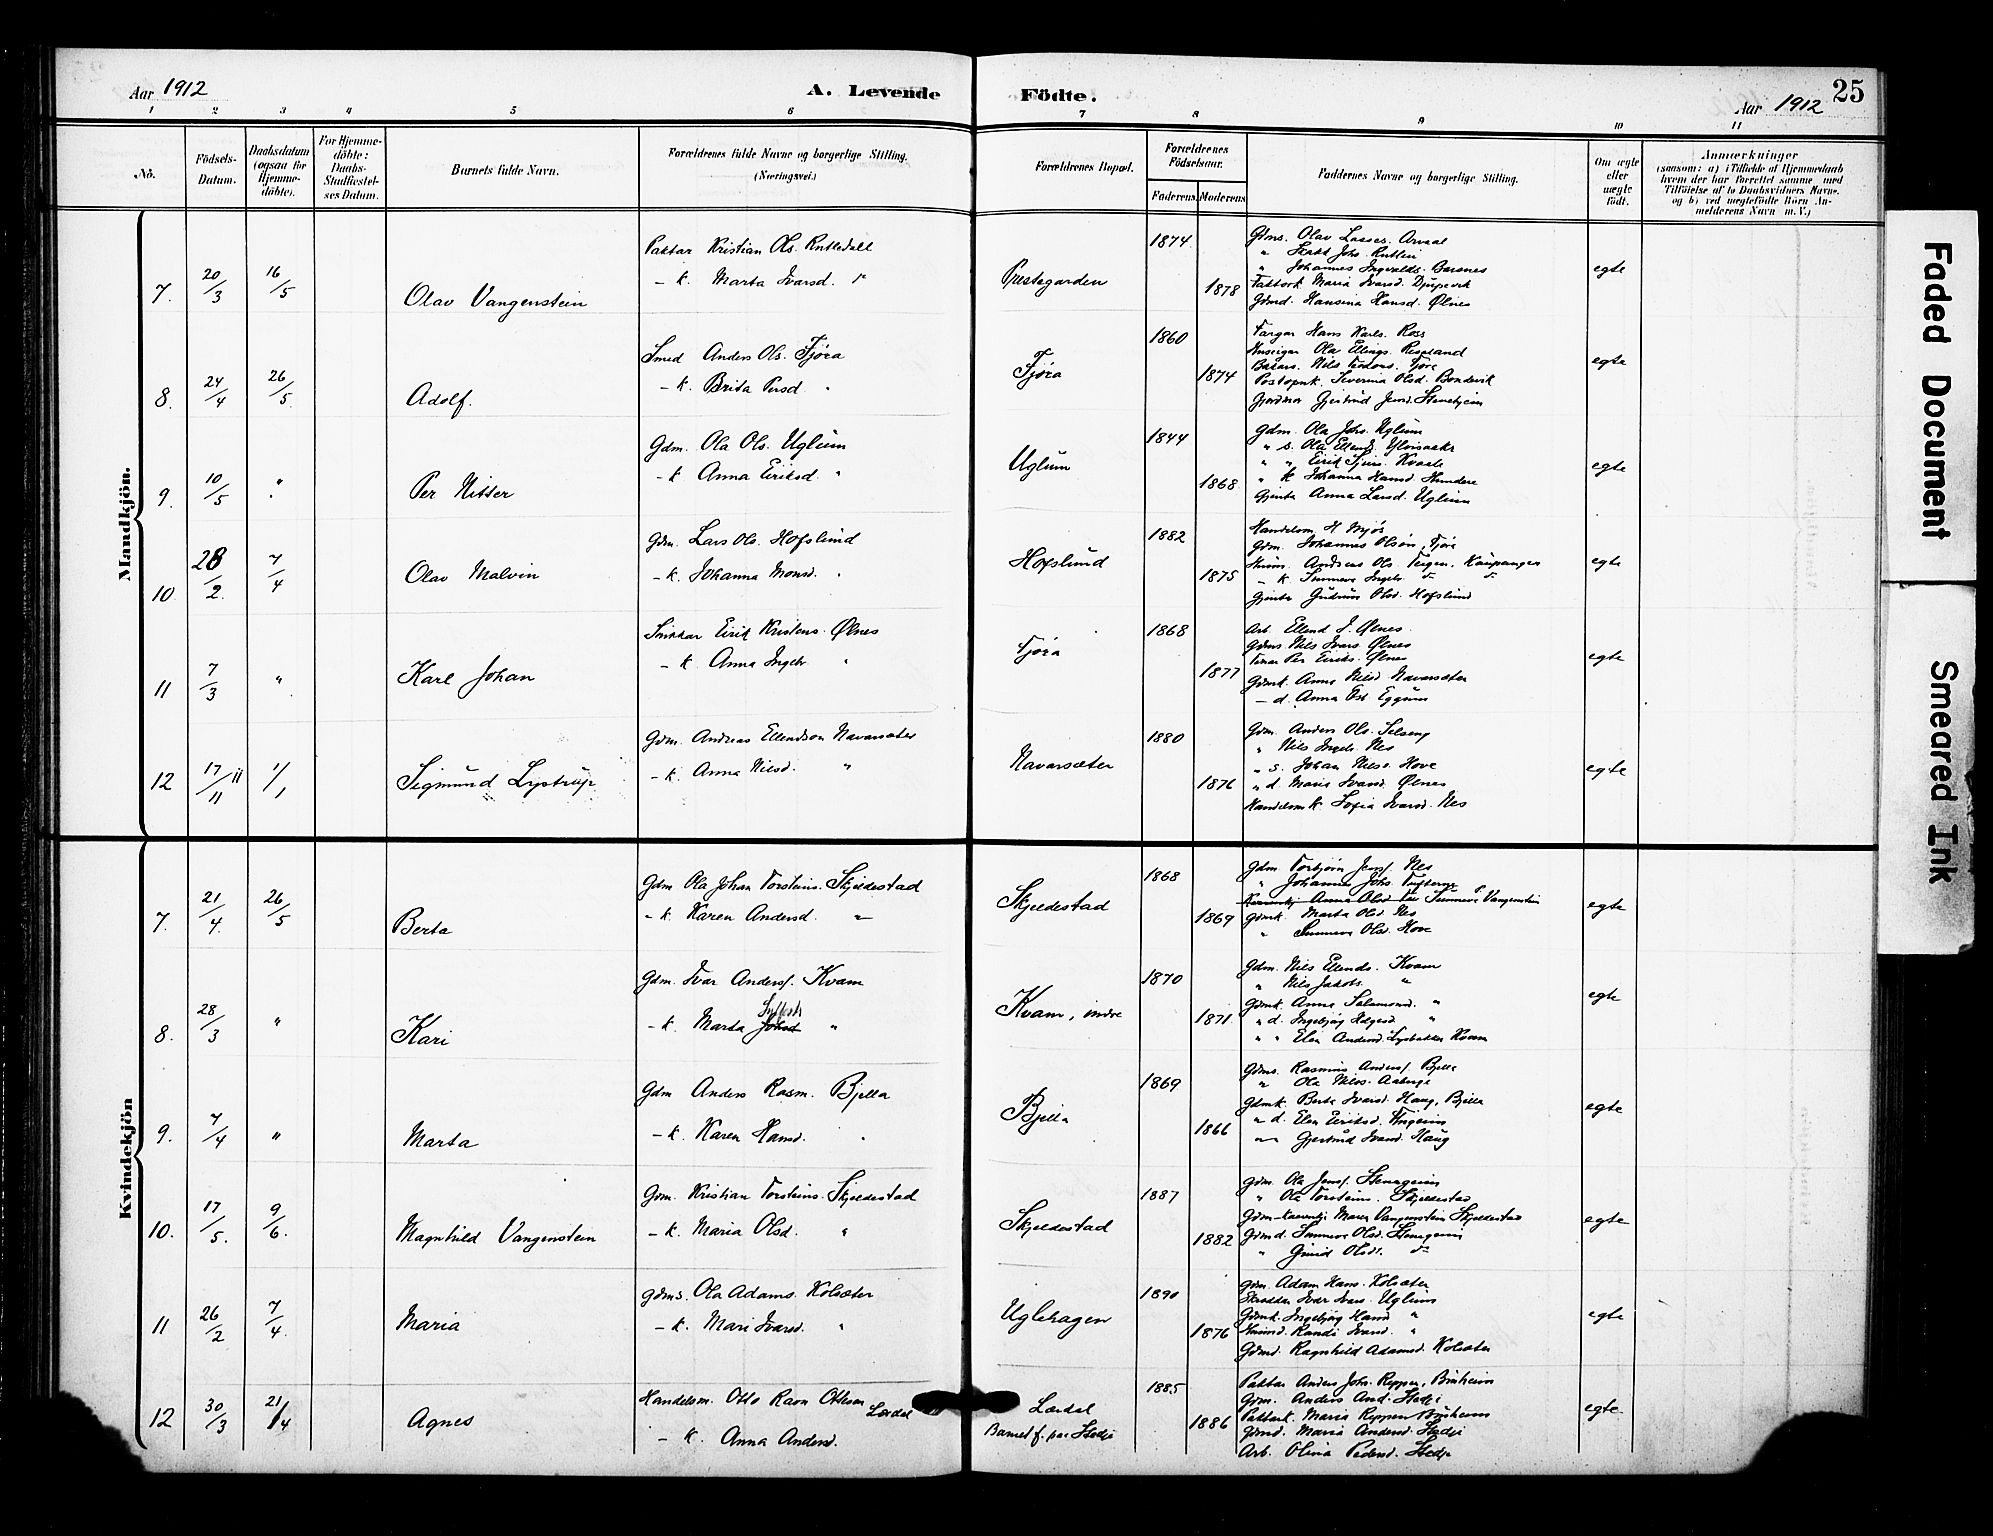 Aar 1912
A. Levende
Födte.
Aar 1912
25
1 2 3 4 5 6 7 8 9 10 11
No.
Födsels-Datum.
Daabsdatum (ogsaa for Hjemmedöbte).
For Hjemmedöbte: Daabs-Stadfæstelses Datum.
Barnets fulde Navn.
Forældrenes fulde Navne og borgerlige Stilling. (Næringsvei.)
Forældrenes Bopæl.
Forældrenes Födselsaar.
Faderens. Moderens.
Faddernes Navne og borgerlige Stilling.
Om ægte eller uægte födt.
Anmærkninger
(saasom: a) i Tilfælde af Hjemmedaab hvem der har forrettet samme med Tilföielse af to Daabsvidners Navne. og b) ved uægtefödte Börn Anmelderens Navn m. V.)
Mandkjön.
7. 20/3 16/5 Olav Vangenstein
Paktar Kristian Ols. Rutledal
- k. Marta Ivarsd. "
Prestegarden 1874 1878
Gdms. Olav Lasses.
" Johs. Rutlin
" Johannes Ingvalds. Barsnes
Maria Ivarsd. Djupevik
Gdmd. Hansina Hansd. Ølnes
egte
8. 24/4 26/5 Adolf.
Smed Anders Ols. Fjøra
- k. Brita Persd. "
Fjøra 1860 1874
Fargar Hans Karls. Ross
Huseigar Ola Ellings.
Nils
Severina Olsd. Bondevik
Gjertrud Jensd.
egte
9. 10/5 " Per Nitter
Gdm. Ola Ols. Uglum
- k Anna Eiriksd. "
Uglum 1844 1868
Gdm. Ola Johs. Uglum
" s. Ola Ellends. Ylvisaaker
" " Eirik Sjurs. Kvaale
" k Johanna Hansd. Hundere
Gjenta Anna Larsd. Uglum
egte
10. 28/2. 7/4 Olav Malvin
Gdm. Lars Ols. Hofslund
- k. Johanna Monsd. "
Hofslund 1882 1875
Handelsm H. Mjøs
Gdm. Johannes Olsøn, Fjøre
Husm. Andreas Ols. Kaupanger
- k Sunneva Ingebr. d. d.
Gjenta Gudrun Olsd. Hofslund
egte
11 7/3 " Karl Johan
Snikkar Eirik Kristens. Ølnes
- k Anna Ingebr. "
Fjøra 1868 1877
Arb. Ellend J. Ølnes.
Gdms. Nils Ivars. Ølnes
Per Eiriks. Ølnes
Gdmk. Anna Nilsd. Navarsæter
- d. Anna Eggum
egte
12 17/11 11 1/1 Sigmund Lystrup
Gdm. Andreas Ellendson Navarsæter
- k. Anna Nilsd. "
Navarsæter 1880 1876
Gdm. Anders Ols. Selseng
" Nils Ingebr. Nes
" s. Johan Nilss. Hove
" d. Maria Ivarsd. Ølnes
Handelsm. k. Sofia Ivarsd. Nes
egte
Kvindekjön
7. 21/4. 26/5 Berta
Gdm Ola Johan Torsteins. Skjeldestad
- k. Karen Andersd. "
Skjeldestad 1868 1869
Gdm Torbjørn Jensf. Nes
" Johannes Johs.
Anna Olsd. Sunneva P. Vangenstein
Gdmk. Marta Olsd. Nes
" Sunneva Olsd. Hove
egte
8. 28/3 " Kari
Gdm. Ivar Andersf. Kvam
- k. Marta Johsd "
Kvam, indre 1870 1871
Gdm. Nils Ellends. Kvam
" Nils Jakobs. "
Gdmk. Anna Salamonsd. "
" d. Ingebjørg Helgesd. "
" " Elen Andersd. Kvam
egte
9. 7/4 " Marta
Gdm Anders Rasm. Bjella
- k. Karen Hansd. "
Bjella 1869 1866
Gdms. Rasmus Andersf. Bjella
" Ola Nilss. Aaberge
Gdmk. Berta Ivarsd. Haug, Bjella
" d. Elen Eiriksd.
" " Gjertrud Ivarsd. Haug
egte
10. 17/5. 9/6. Magnhild Vangenstein
Gdm. Kristian Torsteins. Skjeldestad
- k. Maria Olsd. "
Skjeldestad 1887 1882
Gdm. Ola Jensf. Stenegeim
" Ola Torsteins. Skjeldestad
Maren Vangenstein Skjeldestad
Gdmd. Sunneva Olsd. Stenegeim
" Gurid Olsd. d
egte
11 26/2 7/4. Maria
Gdms. Ola Adams. Kolsæter
- k. Mari Ivarsd. "
Uglehagen 1890 1876
Gdm. Adam Hans. Kolsæter
Skreddar Ivar Ivars. Uglum
Gdmk. Ingebjørg Hansd. "
Husmd. Randi Ivarsd. "
Gdmd. Ragnhild Adamsd. Kolsæter
egte
12 30/3 21/4 Agnes
Handelsm. Otto Ravn Ottesen Lærdal
- k. Anna Andersd.
Lærdal
Barnet f. paa Stedje
1885 1886
Paktar Anders Johs. Reppen, Bruheim
Gdm. Anders And. Stedje
Paktark. Maria Reppen Bruheim
Gdmd. Maria Andersd. Stedje
Arb. Olina Pedersd. Stedje
egte
Faded Document
Smeared Ink